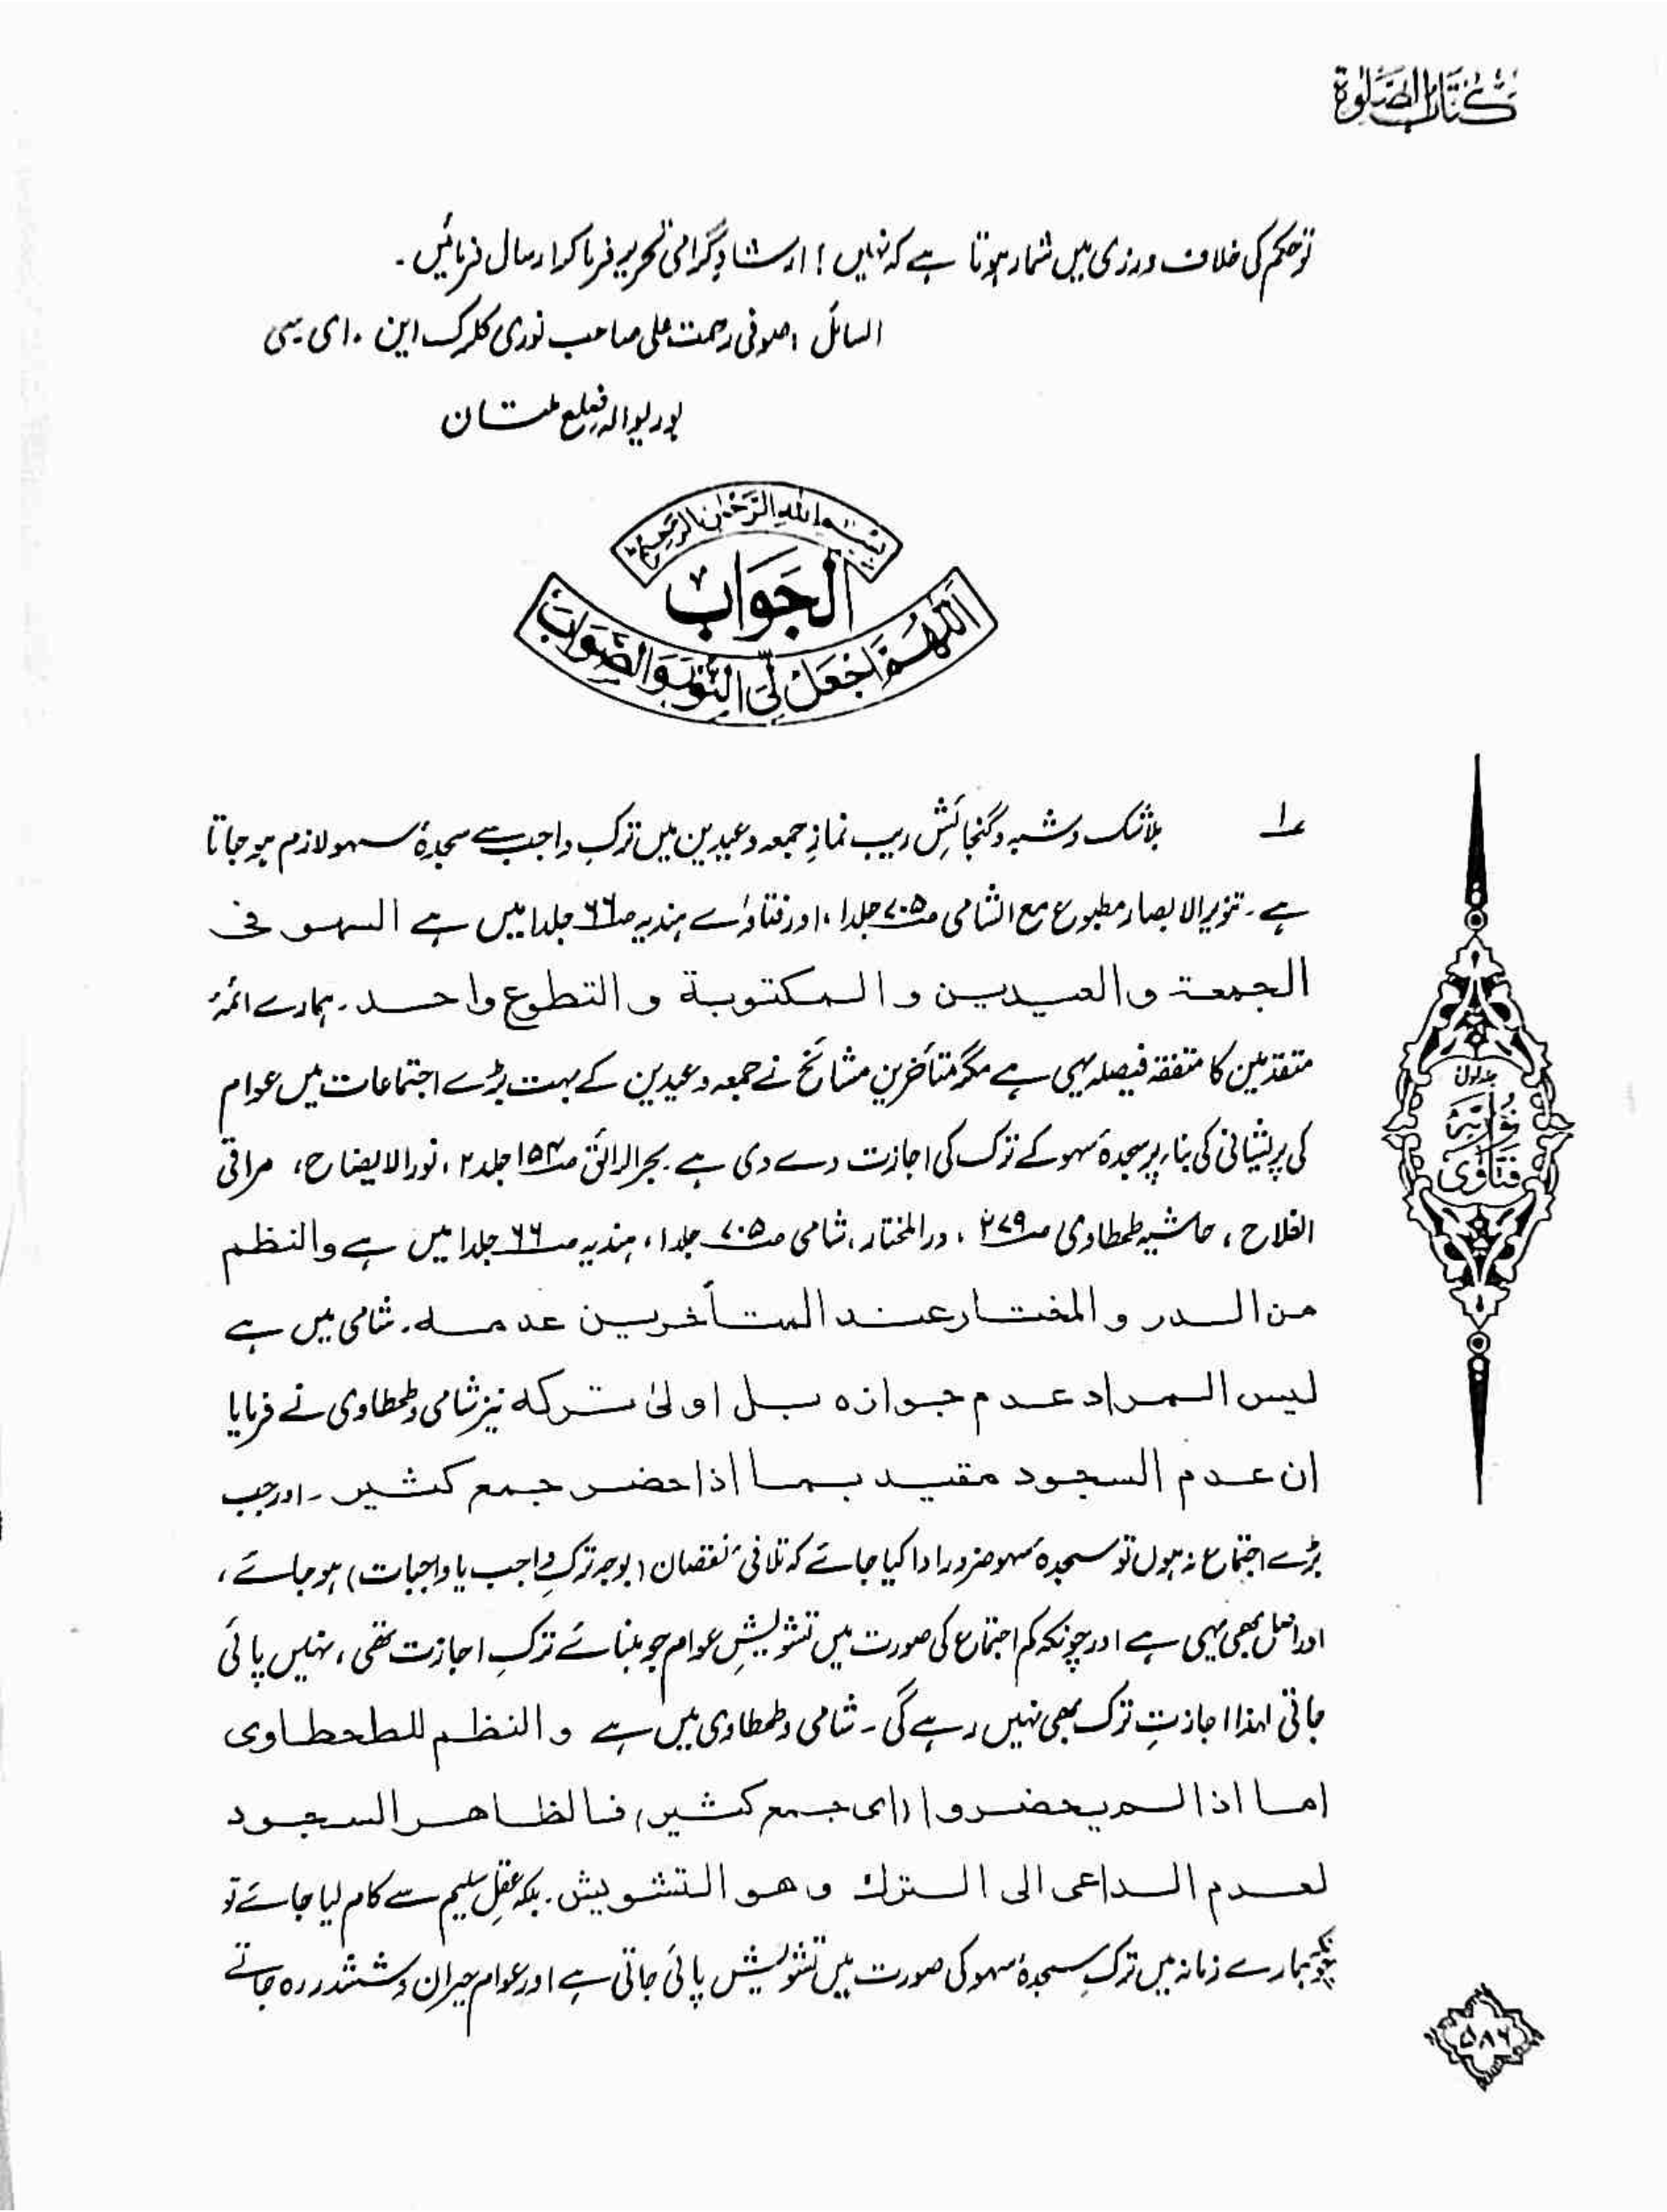 کتاب الصلوٰۃ
تو حکم کی خلاف ورزی میں شمار ہوتا ہے کہ نہیں؟ ارشادِ گرامی تحریر فرما کر ارسال فرمائیں۔
السائل: صوفی رحمت علی صاحب نوری کلرک این۔ ای سی
بوریوالہ ضلع ملتان
بِسْمِ اللهِ الرَّحْمٰنِ الرَّحِیْمِ
الجَوَابُ
اَللّٰهُمَّ اجْعَلْ لِّیَ النُّوْرَ وَالصَّوَابَ
۱؎ بلا شک و شبہ و گنجائشِ ریب نمازِ جمعہ و عیدین میں ترکِ واجب سے سجدۂ سہو لازم ہو جاتا
ہے۔ تنویر الابصار مطبوع مع الشامی صـ۷۰۵ جلد۱، اور فتاوٰے ہندیہ صـ۶۶ جلد۱ میں ہے السہو فی
الجمعۃ والعیدین والمکتوبۃ والتطوع واحد۔ ہمارے ائمۂ
متقدمین کا متفقہ فیصلہ یہی ہے مگر متأخرین مشائخ نے جمعہ و عیدین کے بہت بڑے اجتماعات میں عوام
کی پریشانی کی بناء پر سجدۂ سہو کے ترک کی اجازت دے دی ہے۔ بحر الرائق صـ۱۵۴ جلد۲، نور الایضاح، مراقی
الفلاح، حاشیہ طحطاوی صـ۲۷۹، در المختار، شامی صـ۷۰۵ جلد۱، ہندیہ صـ۶۶ جلد۱ میں ہے والنظم
من الدر والمختار عند المتأخرین عدمہ۔ شامی میں ہے
لیس المراد عدم جوازہ بل اولیٰ ترکہ نیز شامی و طحطاوی نے فرمایا
ان عدم السجود مقید بما اذا حضر جمع کثیر۔ اور جب
بڑے اجتماع نہ ہوں تو سجدۂ سہو ضرور ادا کیا جائے کہ تلافیٔ نقصان (بوجہ ترکِ واجب یا واجبات) ہو جائے،
اور اصل بھی یہی ہے اور چونکہ کم اجتماع کی صورت میں تشویشِ عوام جو بنائے ترکِ اجازت تھی، نہیں پائی
جاتی لہٰذا اجازتِ ترک بھی نہیں رہے گی۔ شامی و طحطاوی میں ہے والنظم للطحطاوی
اما اذا لم یحضروا (ای جمع کثیر) فالظاہر السجود
لعدم الداعی الی الترک وھو التشویش۔ بلکہ عقلِ سلیم سے کام لیا جائے تو
چونکہ ہمارے زمانہ میں ترکِ سجدۂ سہو کی صورت میں تشویش پائی جاتی ہے اور عوام حیران و ششدر رہ جاتے
جلد اول
نوریہ
فتاوٰی
۵۸۶